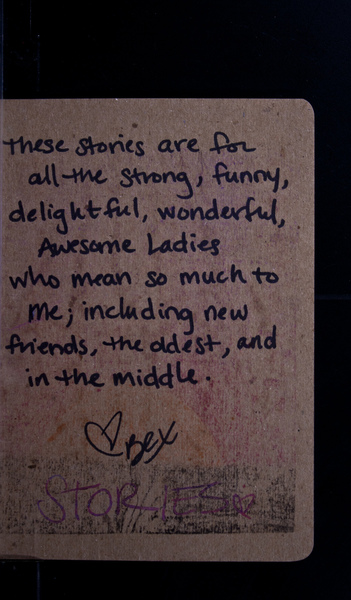 These stories are for
all the strong, funny,
delightful, wonderful,
Awesome Ladies
who mean so much to
me; including new
friends, the oldest, and
in the middle.
♡ Bex
STORIES